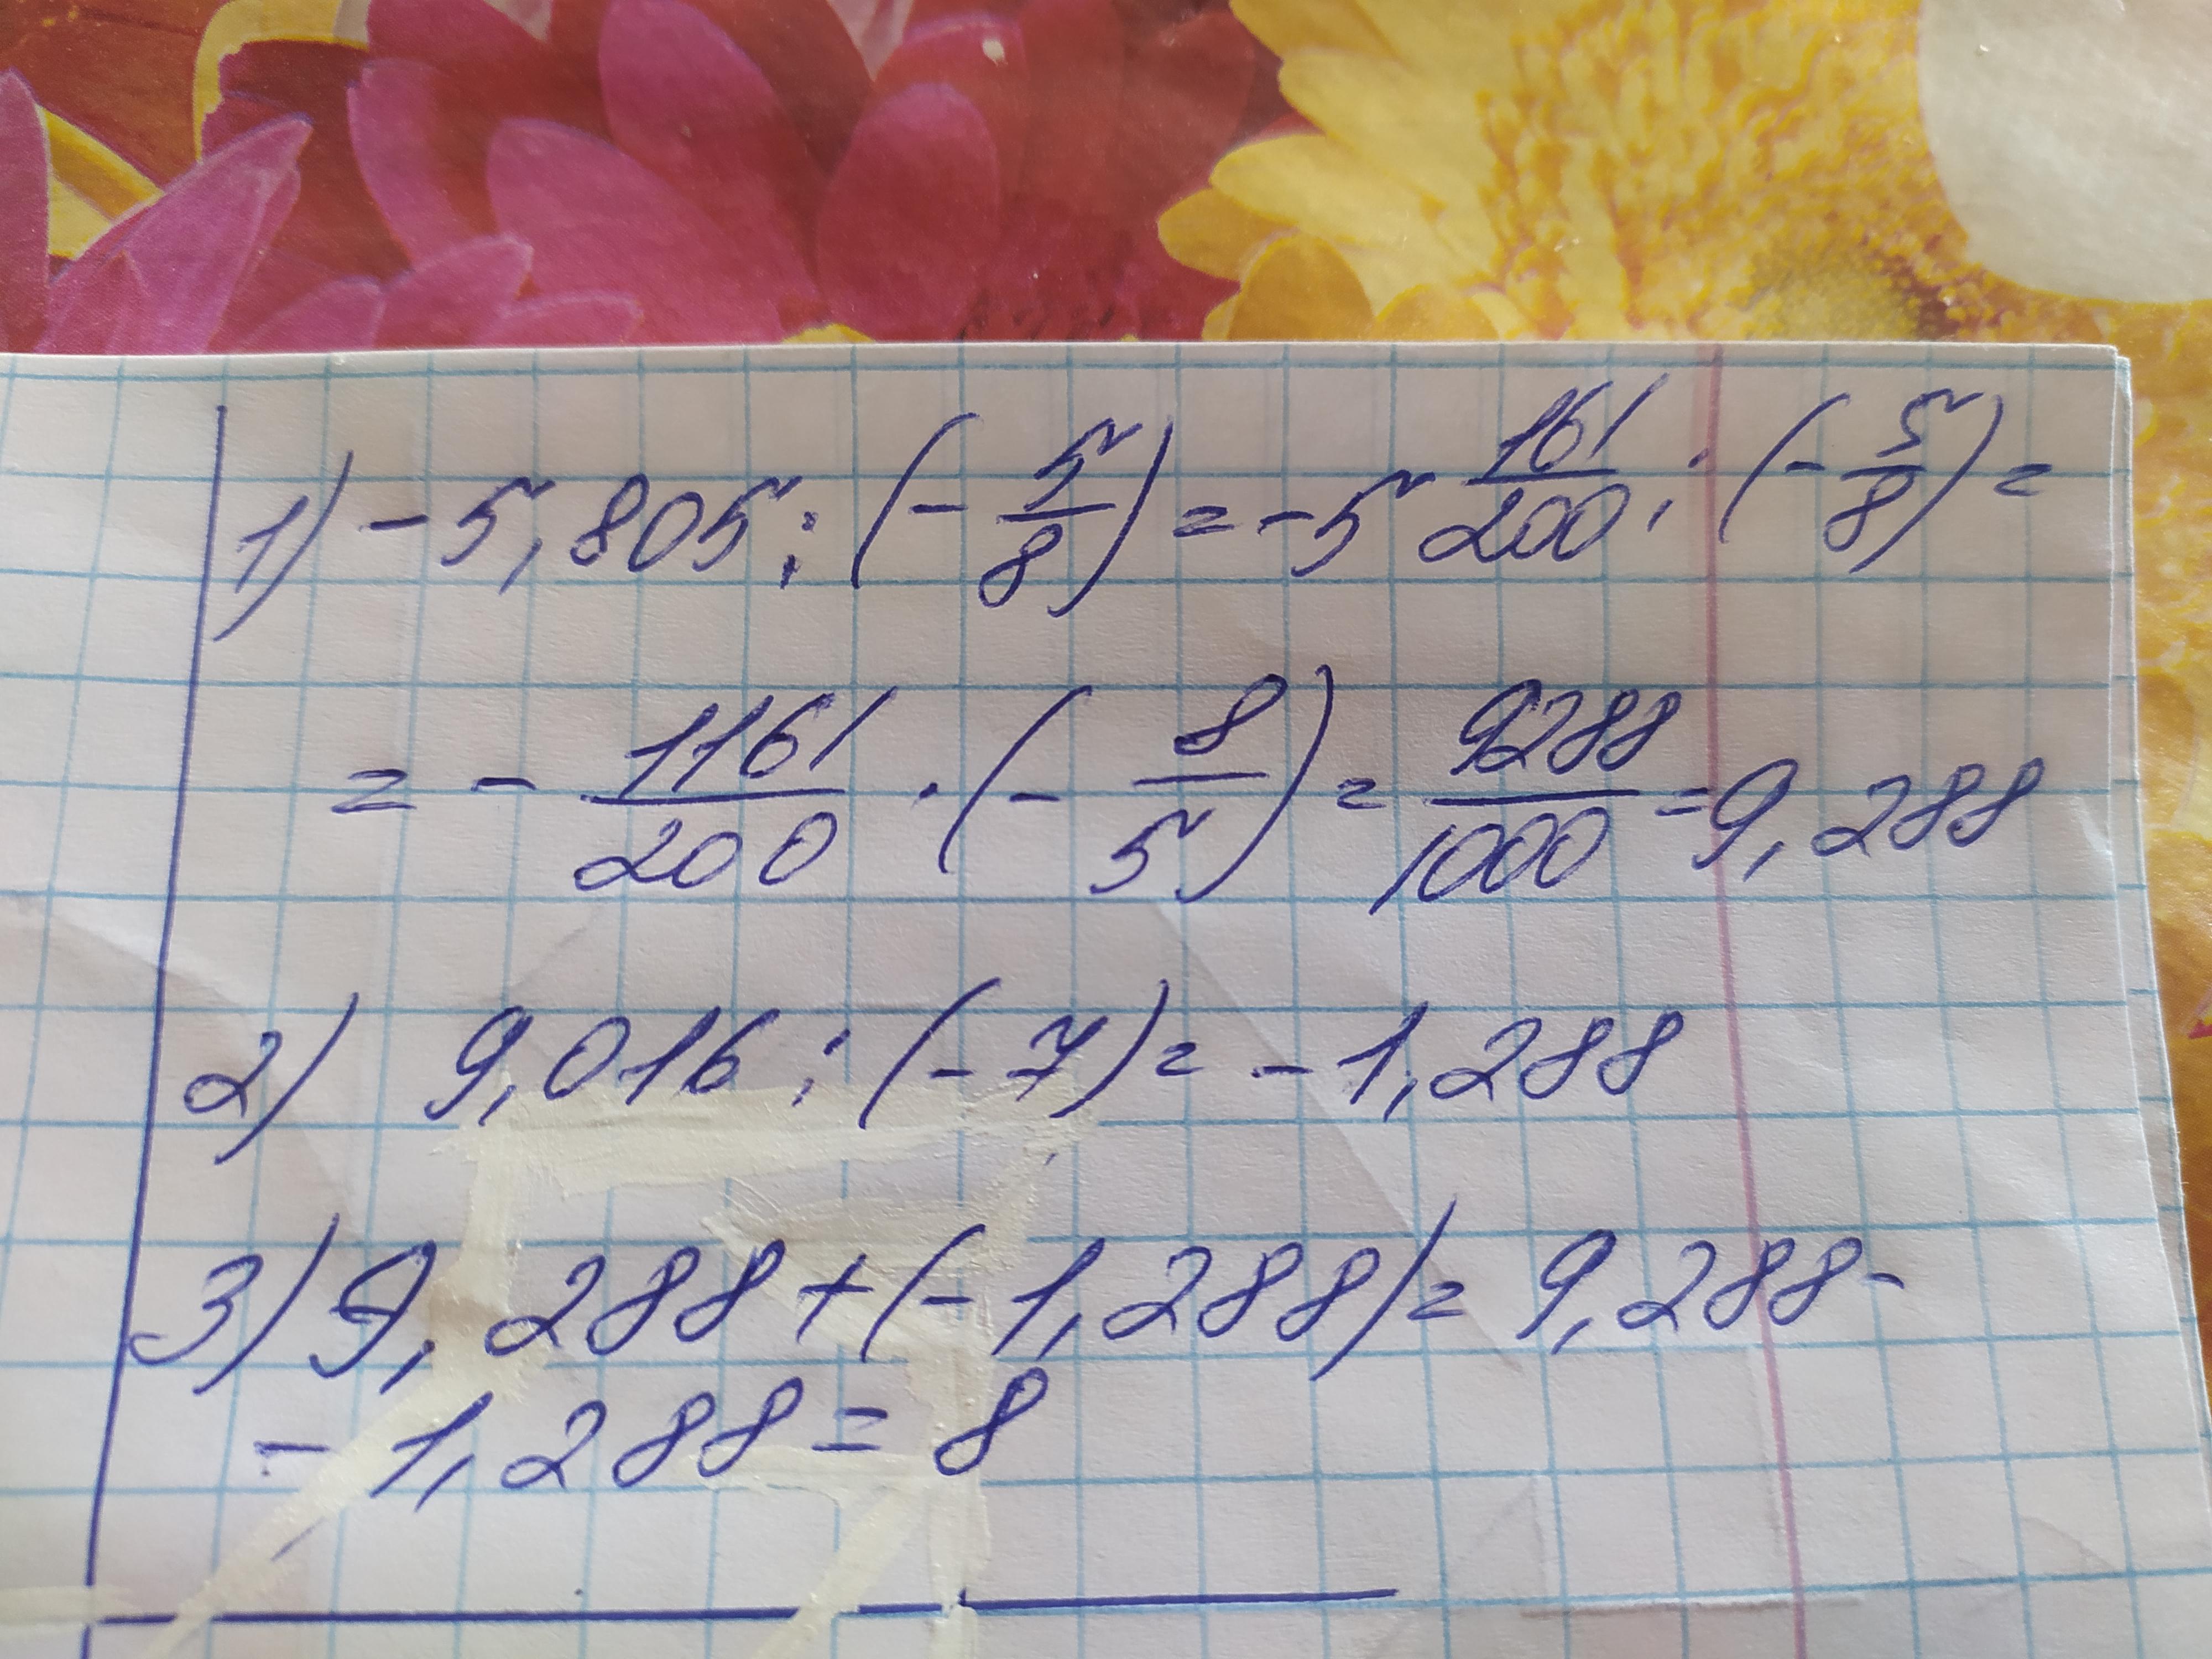 1) -5,805 : (- 5/8) = -5 161/200 : (- 5/8) =
= - 1161/200 · (- 8/5) = 9288/1000 = 9,288
2) 9,016 : (-7) = -1,288
3) 9,288 + (-1,288) = 9,288 -
- 1,288 = 8